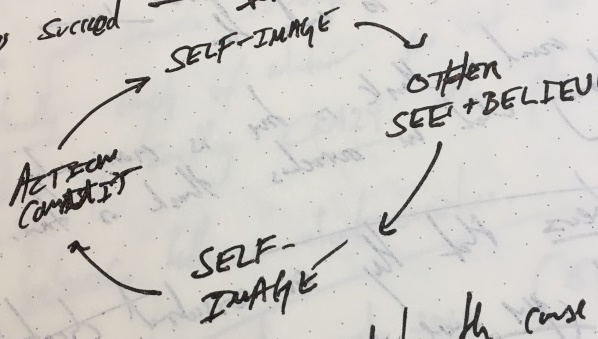 Succeed
SELF-IMAGE
OTHER
SEE + BELIEV
ACTION
COMMIT
SELF-
IMAGE
th cause